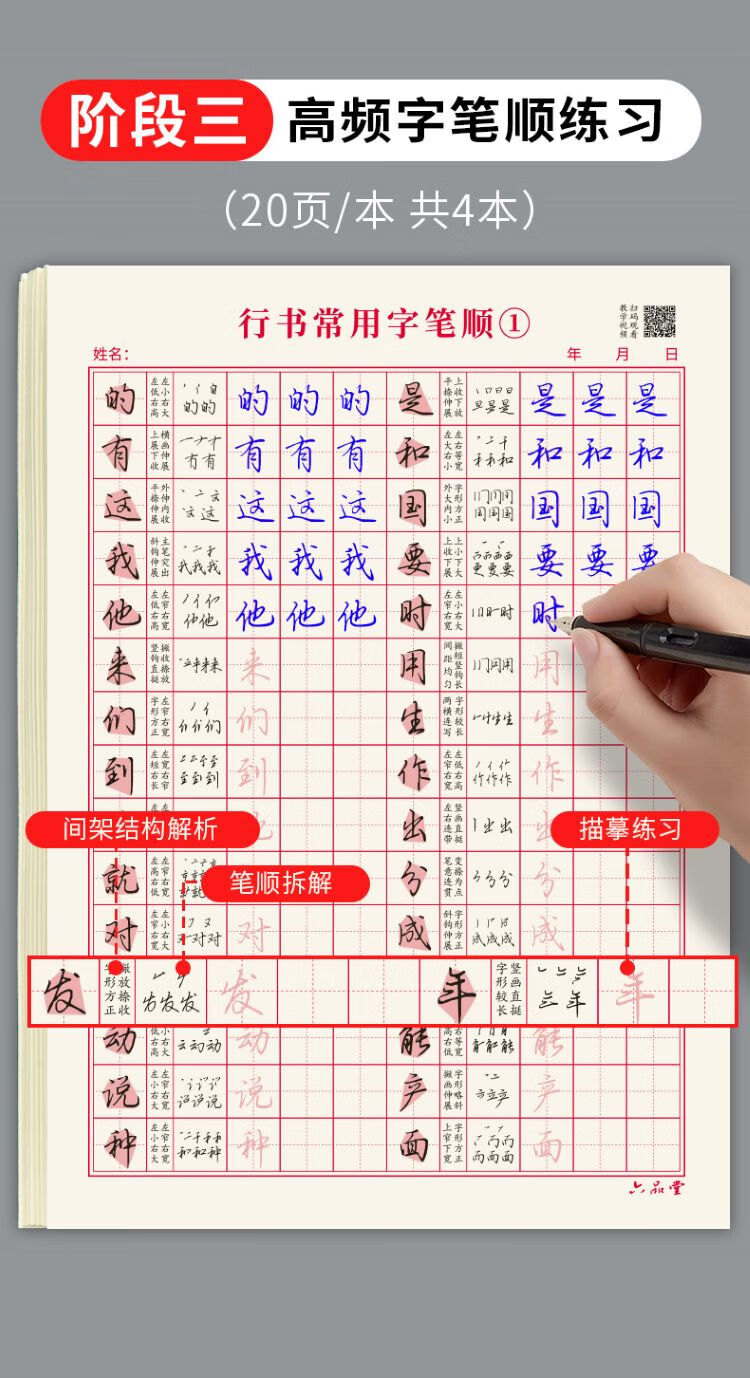 阶段三 高频字笔顺练习
（20页/本 共4本）
行书常用字笔顺①
扫码观看
教学视频
姓名：
年 月 日
的 左低右高 左小右大 的的 的 的 的 是 平捺伸展 上收下放 旦是是 是 是 是
有 上展下收 横画伸展 有有 有 有 有 和 左大右小 左右等宽 禾和和 和 和 和
这 平捺伸展 外伸内收 文这 这 这 这 国 外大内小 字形方正 国国国 国 国 国
我 斜钩伸展 主笔突出 我我我 我 我 我 要 上收下展 上小下大 要要 要 要 要
他 左低右高 左窄右宽 他他 他 他 他 时 左窄右宽 左小右大 时时 时
来 竖钩直挺 撇收捺放 来来 来 用 间距均匀 撇短竖钩长 用用 用
们 字形方正 左窄右宽 们们 们 生 两横连写 字形较长 生生 生
到 左短右长 左宽右窄 到到 到 作 左低右高 左窄右宽 作作作 作
间架结构解析
出 左右连带 竖画直挺 出出 出
描摹练习
就 左高右低 左窄右宽
笔顺拆解
分 笔意连贯 变捺为点 分分 分
对 左窄右宽 左小右大 对对 对 成 斜钩伸展 字形方正 成成成 成
发 字形方正 撇放捺收 发发发 发 年 字形较长 竖画直挺 年 年
动 动动 动 能 能能 能
说 左小右大 左窄右宽 说说说 说 产 撇画伸展 字形略斜 产产 产
种 左小右大 左窄右宽 和和种 种 面 上窄下宽 字形方正 面面面 面
六品堂